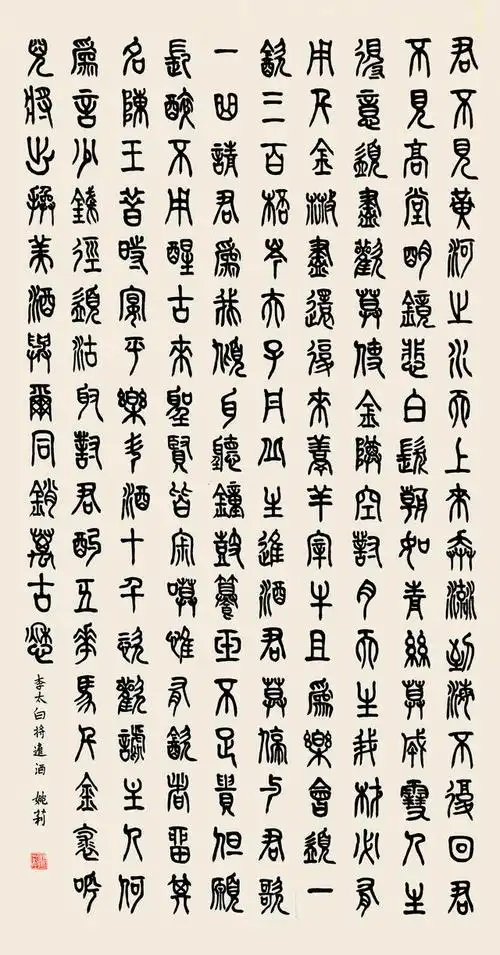 君不見黃河之水天上來奔流到海不復回君
不見高堂明鏡悲白髮朝如青絲莫成雪人生
得意須盡歡莫使金樽空對月天生我材必有
用千金散盡還復來烹羊宰牛且為樂會須一
飲三百杯岑夫子丹丘生進酒君莫停與君歌
一曲請君為我傾耳聽鐘鼓饌玉不足貴但願
長醉不用醒古來聖賢皆寂寞惟有飲者留其
名陳王昔時宴平樂斗酒十千恣歡謔主人何
為言少錢徑須沽取對君酌五花馬千金裘呼
兒將出換美酒與爾同銷萬古愁
李太白將進酒 婉莉